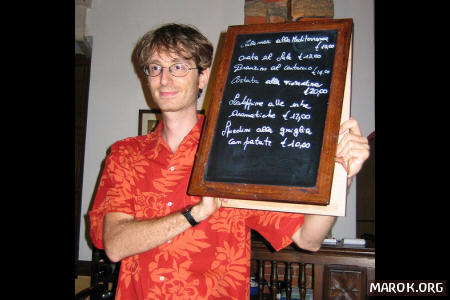 alla Mediterranea
€ 18,00
Orata al Sale € 18,00
Branzino al cartoccio
€ 14,00
Costata alla
€ 20,00
Scaloppine alle erbe
Aromatiche € 12,00
Spiedini alla griglia
con patate € 10,00
MAROK.ORG